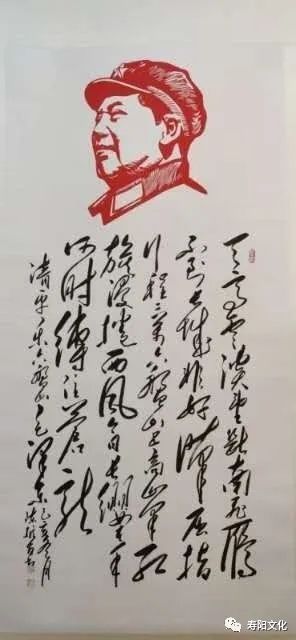 天高云淡望断南飞雁
不到长城非好汉屈指
行程二万六盘山上高峰红
旗漫卷西风今日长缨在手
何时缚住苍龙
清平乐六盘山毛泽东己亥
寿阳文化